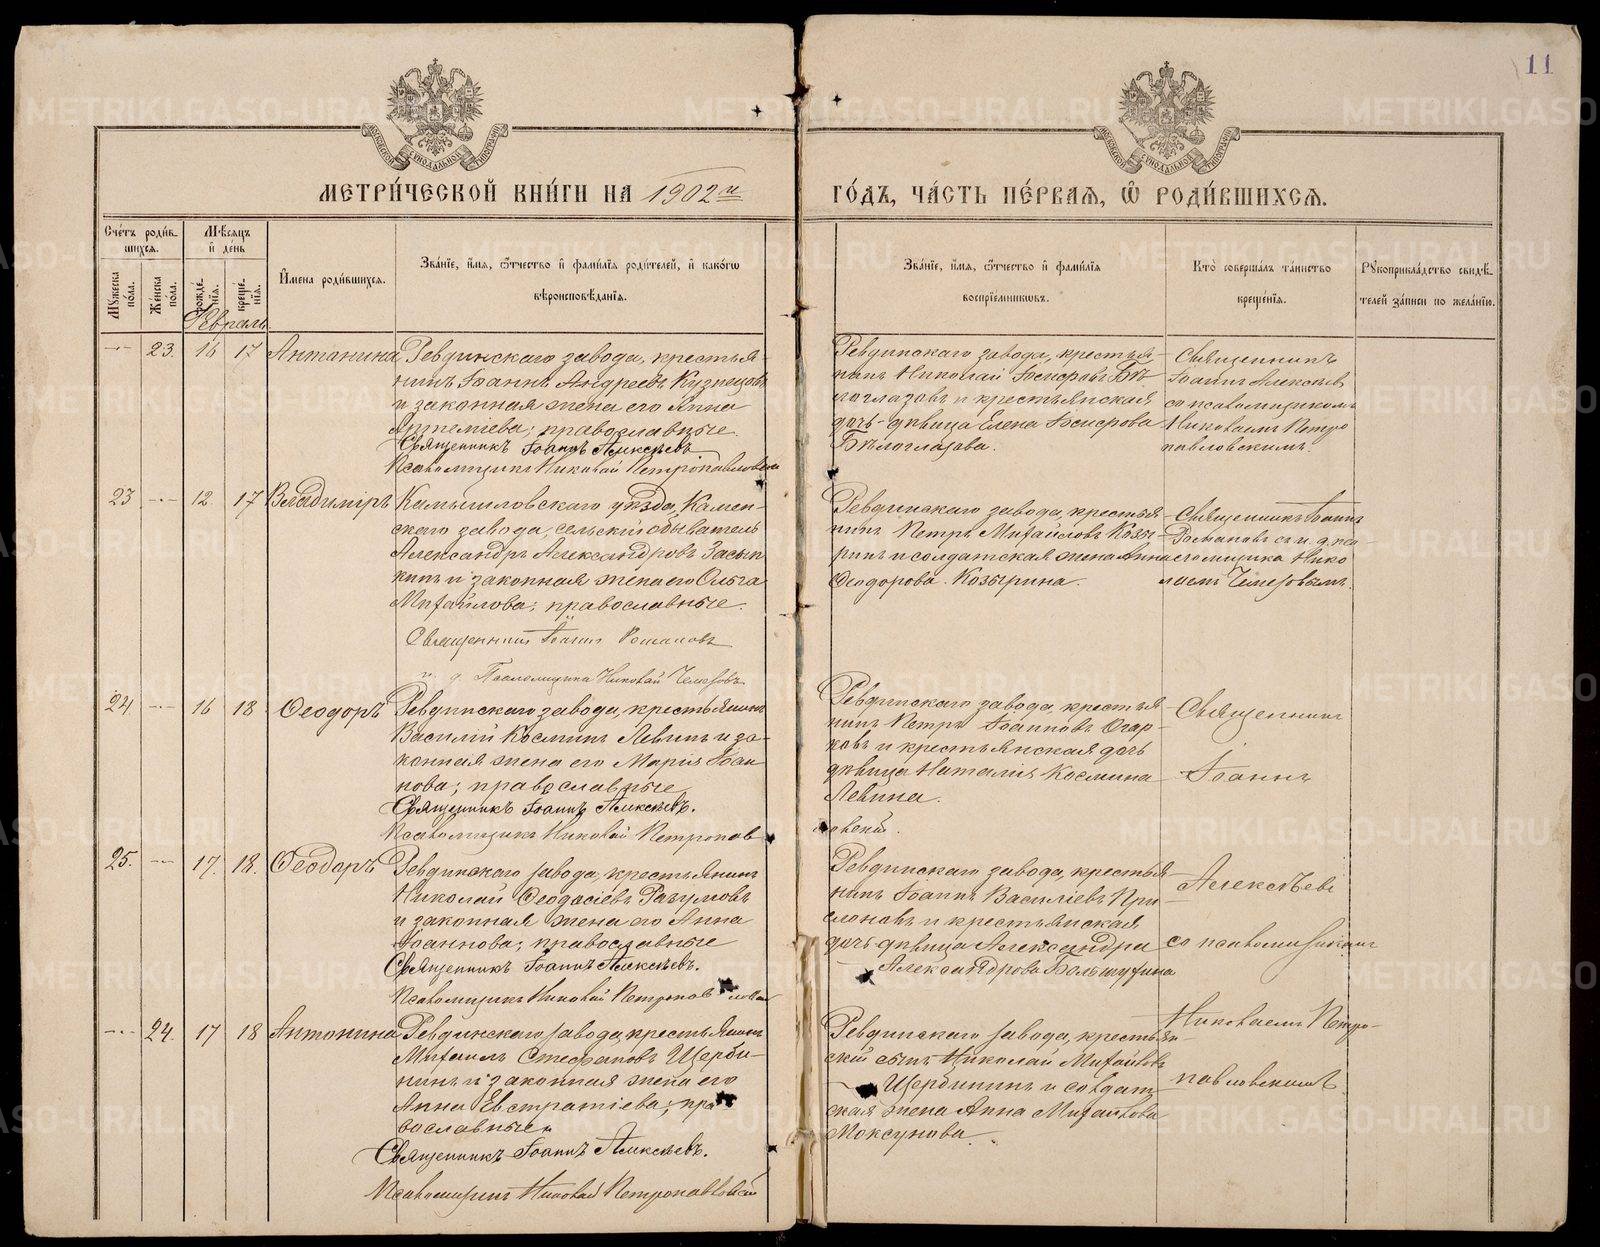 11
МЕТРИ́ЧЕСКОЙ КНИ́ГИ НА 1902й ГО́ДЪ, ЧА́СТЬ ПЕ́РВАѦ, Ѡ РОДИ́ВШИХСѦ.
Сче́тъ роди́в-
шихсѧ.
Мꙋжеска по́ла.
Же́нска по́ла.
Мѣ́сѧцъ
и҆ де́нь
рожде́нїѧ.
креще́нїѧ.
И҆мена роди́вшихсѧ.
Зва́нїе, и҆́мѧ, ѻ҆́тчество и҆ фами́лїѧ роди́телей, и҆ како́гѡ
вѣроисповѣ́данїѧ.
Зва́нїе, и҆́мѧ, ѻ҆́тчество и҆ фами́лїѧ
воспрїе́мникѡвъ.
Кто̀ соверша́лъ та́инство
креще́нїѧ.
Рꙋкоприкла́дство свидѣ́-
телей за́писи по жела́нїю.
Февраль
23. 16 17 Антанина
Ревдинскаго завода, крестья-
нинъ Іоаннъ Андреевъ Кузнецовъ
и законная жена его Анна
православные.
Священникъ Іоаннъ Алексѣевъ
Псаломщикъ Николай Петропавловскій
Ревдинскаго завода, крестья-
нинъ Николай Бѣ-
логлазовъ и крестьянская
дочь-дѣвица Елена
Бѣлоглазова.
Священникъ
Іоаннъ Алексѣев
со псаломщикомъ
Николаемъ Петро
павловскимъ.
23 12. 17 Владиміръ
Камышловскаго уѣзда, Камен-
скаго завода, сельскій обыватель
Александръ Александровъ Засып
кинъ и законная жена его Ольга
Михайлова; православные.
Священникъ Іоаннъ Романовъ
и. д. Псаломщика Николай Чемезовъ
Ревдинскаго завода, крестья
нинъ Петръ Михайловъ Козы-
ринъ и солдатская жена Анна
Ѳеодорова Козырина.
Священникъ Іоаннъ
Романовъ съ и. д. пса-
ломщика Нико
лаемъ Чемезовымъ.
24 16 18 Ѳеодоръ
Ревдинскаго завода, крестьянинъ
Василій Косминъ Левинъ и за-
конная жена его Марія Іоан
нова; православные
Священникъ Іоаннъ Алексѣевъ.
Псаломщикъ Николай Петропав-
ловскій.
Ревдинскаго завода, крестья
нинъ Петръ Іоанновъ Огар-
ковъ и крестьянская дочь
дѣвица Наталія Космина
Левина.
Священникъ
Іоаннъ
25. 17. 18. Ѳеодоръ
Ревдинскаго завода, крестьянинъ
Николай Ѳеодосіевъ Разумовъ
и законная жена его Анна
Іоаннова; православные
Священникъ Іоаннъ Алексѣевъ.
Псаломщикъ Николай Петропавловскій
Ревдинскаго завода, крестья-
нинъ Іоаннъ Василіевъ
и крестьянская
дочь-дѣвица Александра
Александрова
Алексѣевъ
со псаломщикомъ
24. 17 18 Антонина
Ревдинскаго завода, крестьянинъ
Михаилъ Стефановъ Щерби-
нинъ и законная жена его
Анна Евстратіева; пра
вославные
Священникъ Іоаннъ Алексѣевъ.
Псаломщикъ Николай Петропавловскій
Ревдинскаго завода, крестьян-
скій сынъ Николай Михайловъ
Щербининъ и солдат
ская жена Анна Михайлова
Моксунова.
Николаемъ Петро-
павловскимъ
METRIKI.GASO-URAL.RU